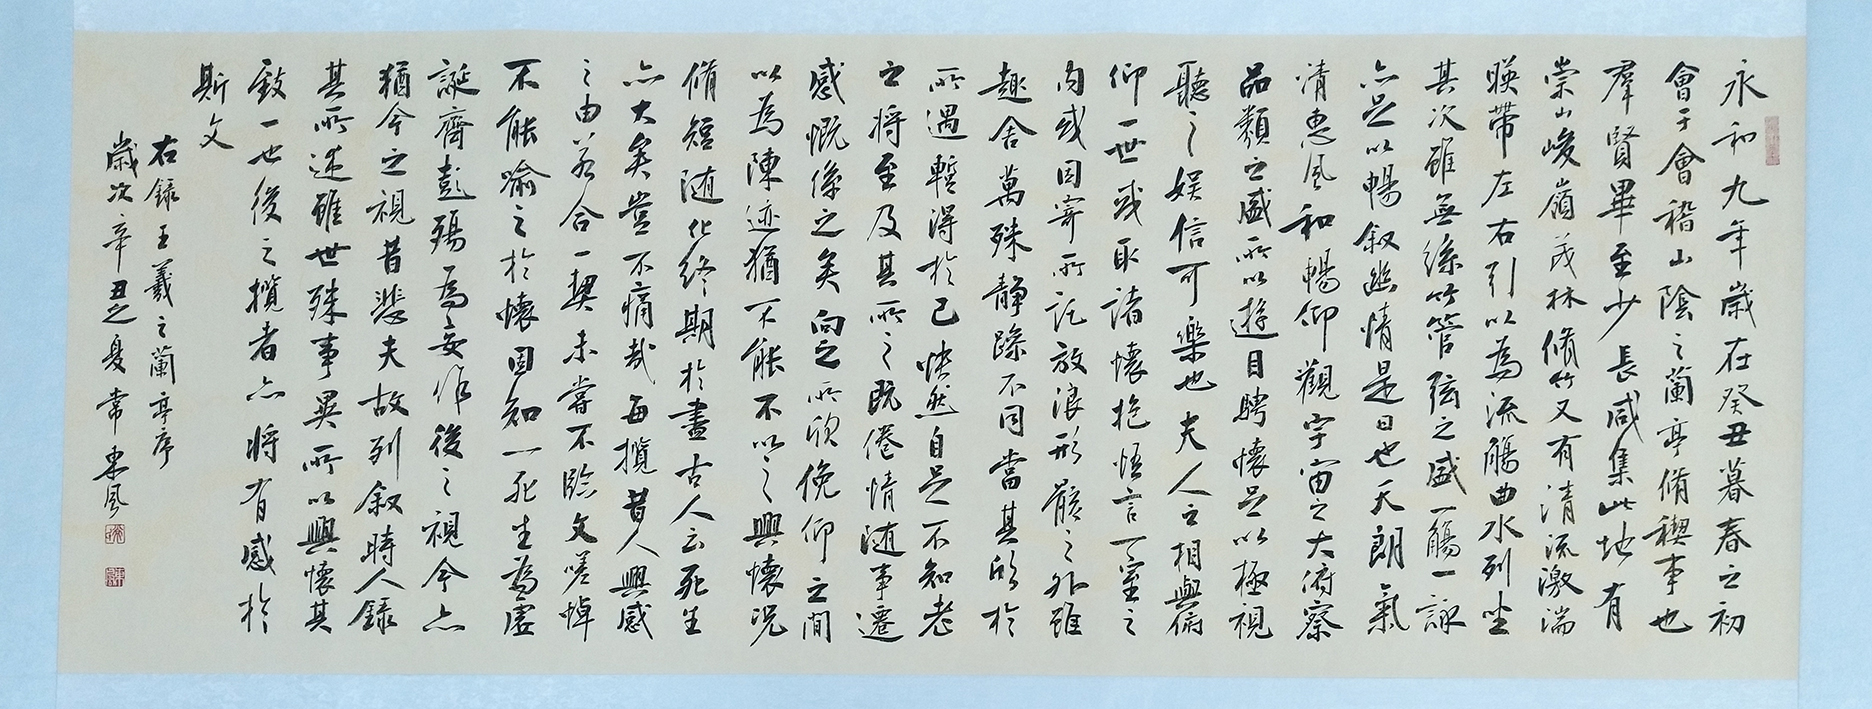 永和九年歲在癸丑暮春之初
會于會稽山陰之蘭亭脩禊事也
羣賢畢至少長咸集此地有
崇山峻嶺茂林脩竹又有清流激湍
暎帶左右引以為流觴曲水列坐
其次雖無絲竹管弦之盛一觴一詠
亦足以暢叙幽情是日也天朗氣
清惠風和暢仰觀宇宙之大俯察
品類之盛所以遊目騁懷足以極視
聽之娛信可樂也夫人之相與俯
仰一世或取諸懷抱悟言一室之
內或因寄所託放浪形骸之外雖
趣舍萬殊靜躁不同當其欣於
所遇暫得於己快然自足不知老
之將至及其所之既倦情随事遷
感慨係之矣向之所欣俛仰之間
以為陳迹猶不能不以之興懷況
脩短随化終期於盡古人云死生
亦大矣豈不痛哉每攬昔人興感
之由若合一契未嘗不臨文嗟悼
不能喻之於懷固知一死生為虛
誕齊彭殤為妄作後之視今亦
猶今之視昔悲夫故列叙時人錄
其所述雖世殊事異所以興懷其
致一也後之攬者亦將有感於
斯文
右錄王羲之蘭亭序
歲次辛丑之夏常東風